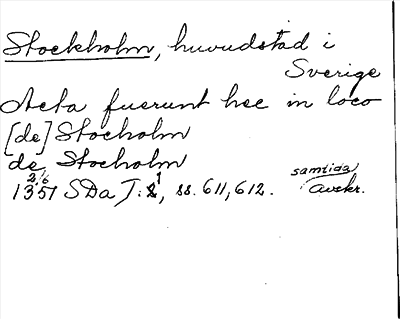 Stockholm, huvudstad i
Sverige
Acta fuerunt hec in loco
[de] Stocholm
de Stocholm
2/6
1357 SDa I:1, ss. 611, 612. samtida
avskr.